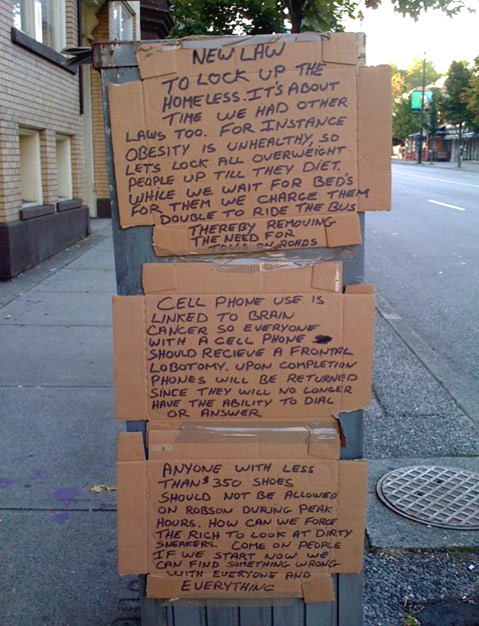 NEW LAW
TO LOCK UP THE
HOMELESS. IT'S ABOUT
TIME WE HAD OTHER
LAWS TOO. FOR INSTANCE
OBESITY IS UNHEALTHY, SO
LETS LOCK ALL OVERWEIGHT
PEOPLE UP TILL THEY DIET.
WHILE WE WAIT FOR BED'S
FOR THEM WE CHARGE THEM
DOUBLE TO RIDE THE BUS
THEREBY REMOVING
THE NEED FOR
TOLLS ON ROADS
CELL PHONE USE IS
LINKED TO BRAIN
CANCER SO EVERYONE
WITH A CELL PHONE
SHOULD RECIEVE A FRONTAL
LOBOTOMY. UPON COMPLETION
PHONES WILL BE RETURNED
SINCE THEY WILL NO LONGER
HAVE THE ABILITY TO DIAL
OR ANSWER
ANYONE WITH LESS
THAN $350 SHOES
SHOULD NOT BE ALLOWED
ON ROBSON DURING PEAK
HOURS. HOW CAN WE FORCE
THE RICH TO LOOK AT DIRTY
SNEAKERS. COME ON PEOPLE
IF WE START NOW WE
CAN FIND SOMETHING WRONG
WITH EVERYONE AND
EVERYTHING